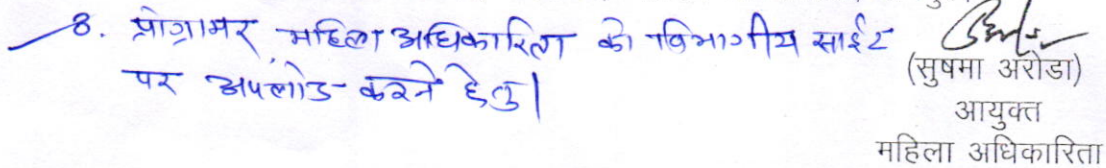 8. प्रोग्रामर, महिला अधिकारिता को विभागीय साईट
पर अपलोड करने हेतु।
(सुषमा अरोडा)
आयुक्त
महिला अधिकारिता